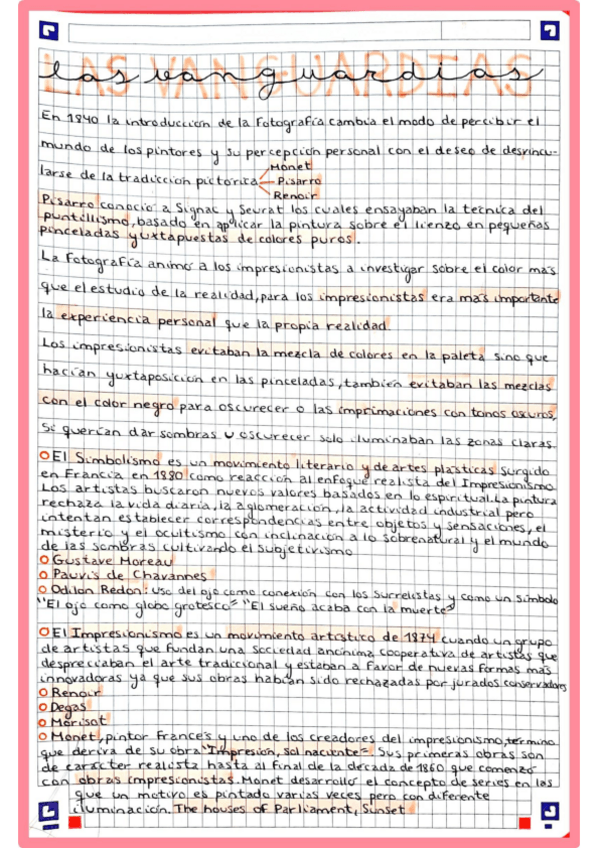 las vanguardias
LAS VANGUARDIAS
En 1840 la introduccion de la Fotografía cambia el modo de percibir el
mundo de los pintores y su percepción personal con el deseo de desvincu-
larse de la tradicción pictórica
Monet
Pisarro
Renoir
Pisarro conoció a Signac y Seurat los cuales ensayaban la técnica del
puntillismo, basado en aplicar la pintura sobre el lienzo en pequeñas
pinceladas yuxtapuestas de colores puros.
La Fotografía animó a los impresionistas a investigar sobre el color más
que el estudio de la realidad, para los impresionistas era más importante
la experiencia personal que la propia realidad.
Los impresionistas evitaban la mezcla de colores en la paleta sino que
hacían yuxtaposición en las pinceladas, también evitaban las mezclas
con el color negro para oscurecer o las imprimaciones con tonos oscuros,
si querían dar sombras u oscurecer solo iluminaban las zonas claras.
El Simbolismo es un movimiento literario y de artes plásticas surgido
en Francia en 1880 como reacción al enfoque realista del Impresionismo
Los artistas buscaron nuevos valores basados en lo espiritual. La pintura
rechaza la vida diaria, la aglomeración, la actividad industrial pero
intentan establecer correspondencias entre objetos y sensaciones, el
misterio y el ocultismo con inclinación a lo sobrenatural y el mundo
de las sombras cultivando el subjetivismo
Gustave Moreau
Pauvis de Chavannes
Odilon Redon: Uso del ojo como conexión con los surrelistas y como un símbolo
"El ojo como globo grotesco" "El sueño acaba con la muerte"
El Impresionismo es un movimiento artístico de 1874 cuando un grupo
de artistas que fundan una sociedad anónima cooperativa de artistas que
despreciaban el arte tradicional y estaban a favor de nuevas formas más
innovadoras ya que sus obras habían sido rechazadas por jurados conservadores
Renoir
Degas
Morisot
Monet, pintor Francés y uno de los creadores del impresionismo, término
que deriva de su obra "Impresión, sol naciente" Sus primeras obras son
de carácter realista hasta al final de la década de 1860 que comenzó
con obras impresionistas. Monet desarrolló el concepto de series en las
que un motivo es pintado varias veces pero con diferente
iluminación. The houses of Parliament, Sunset